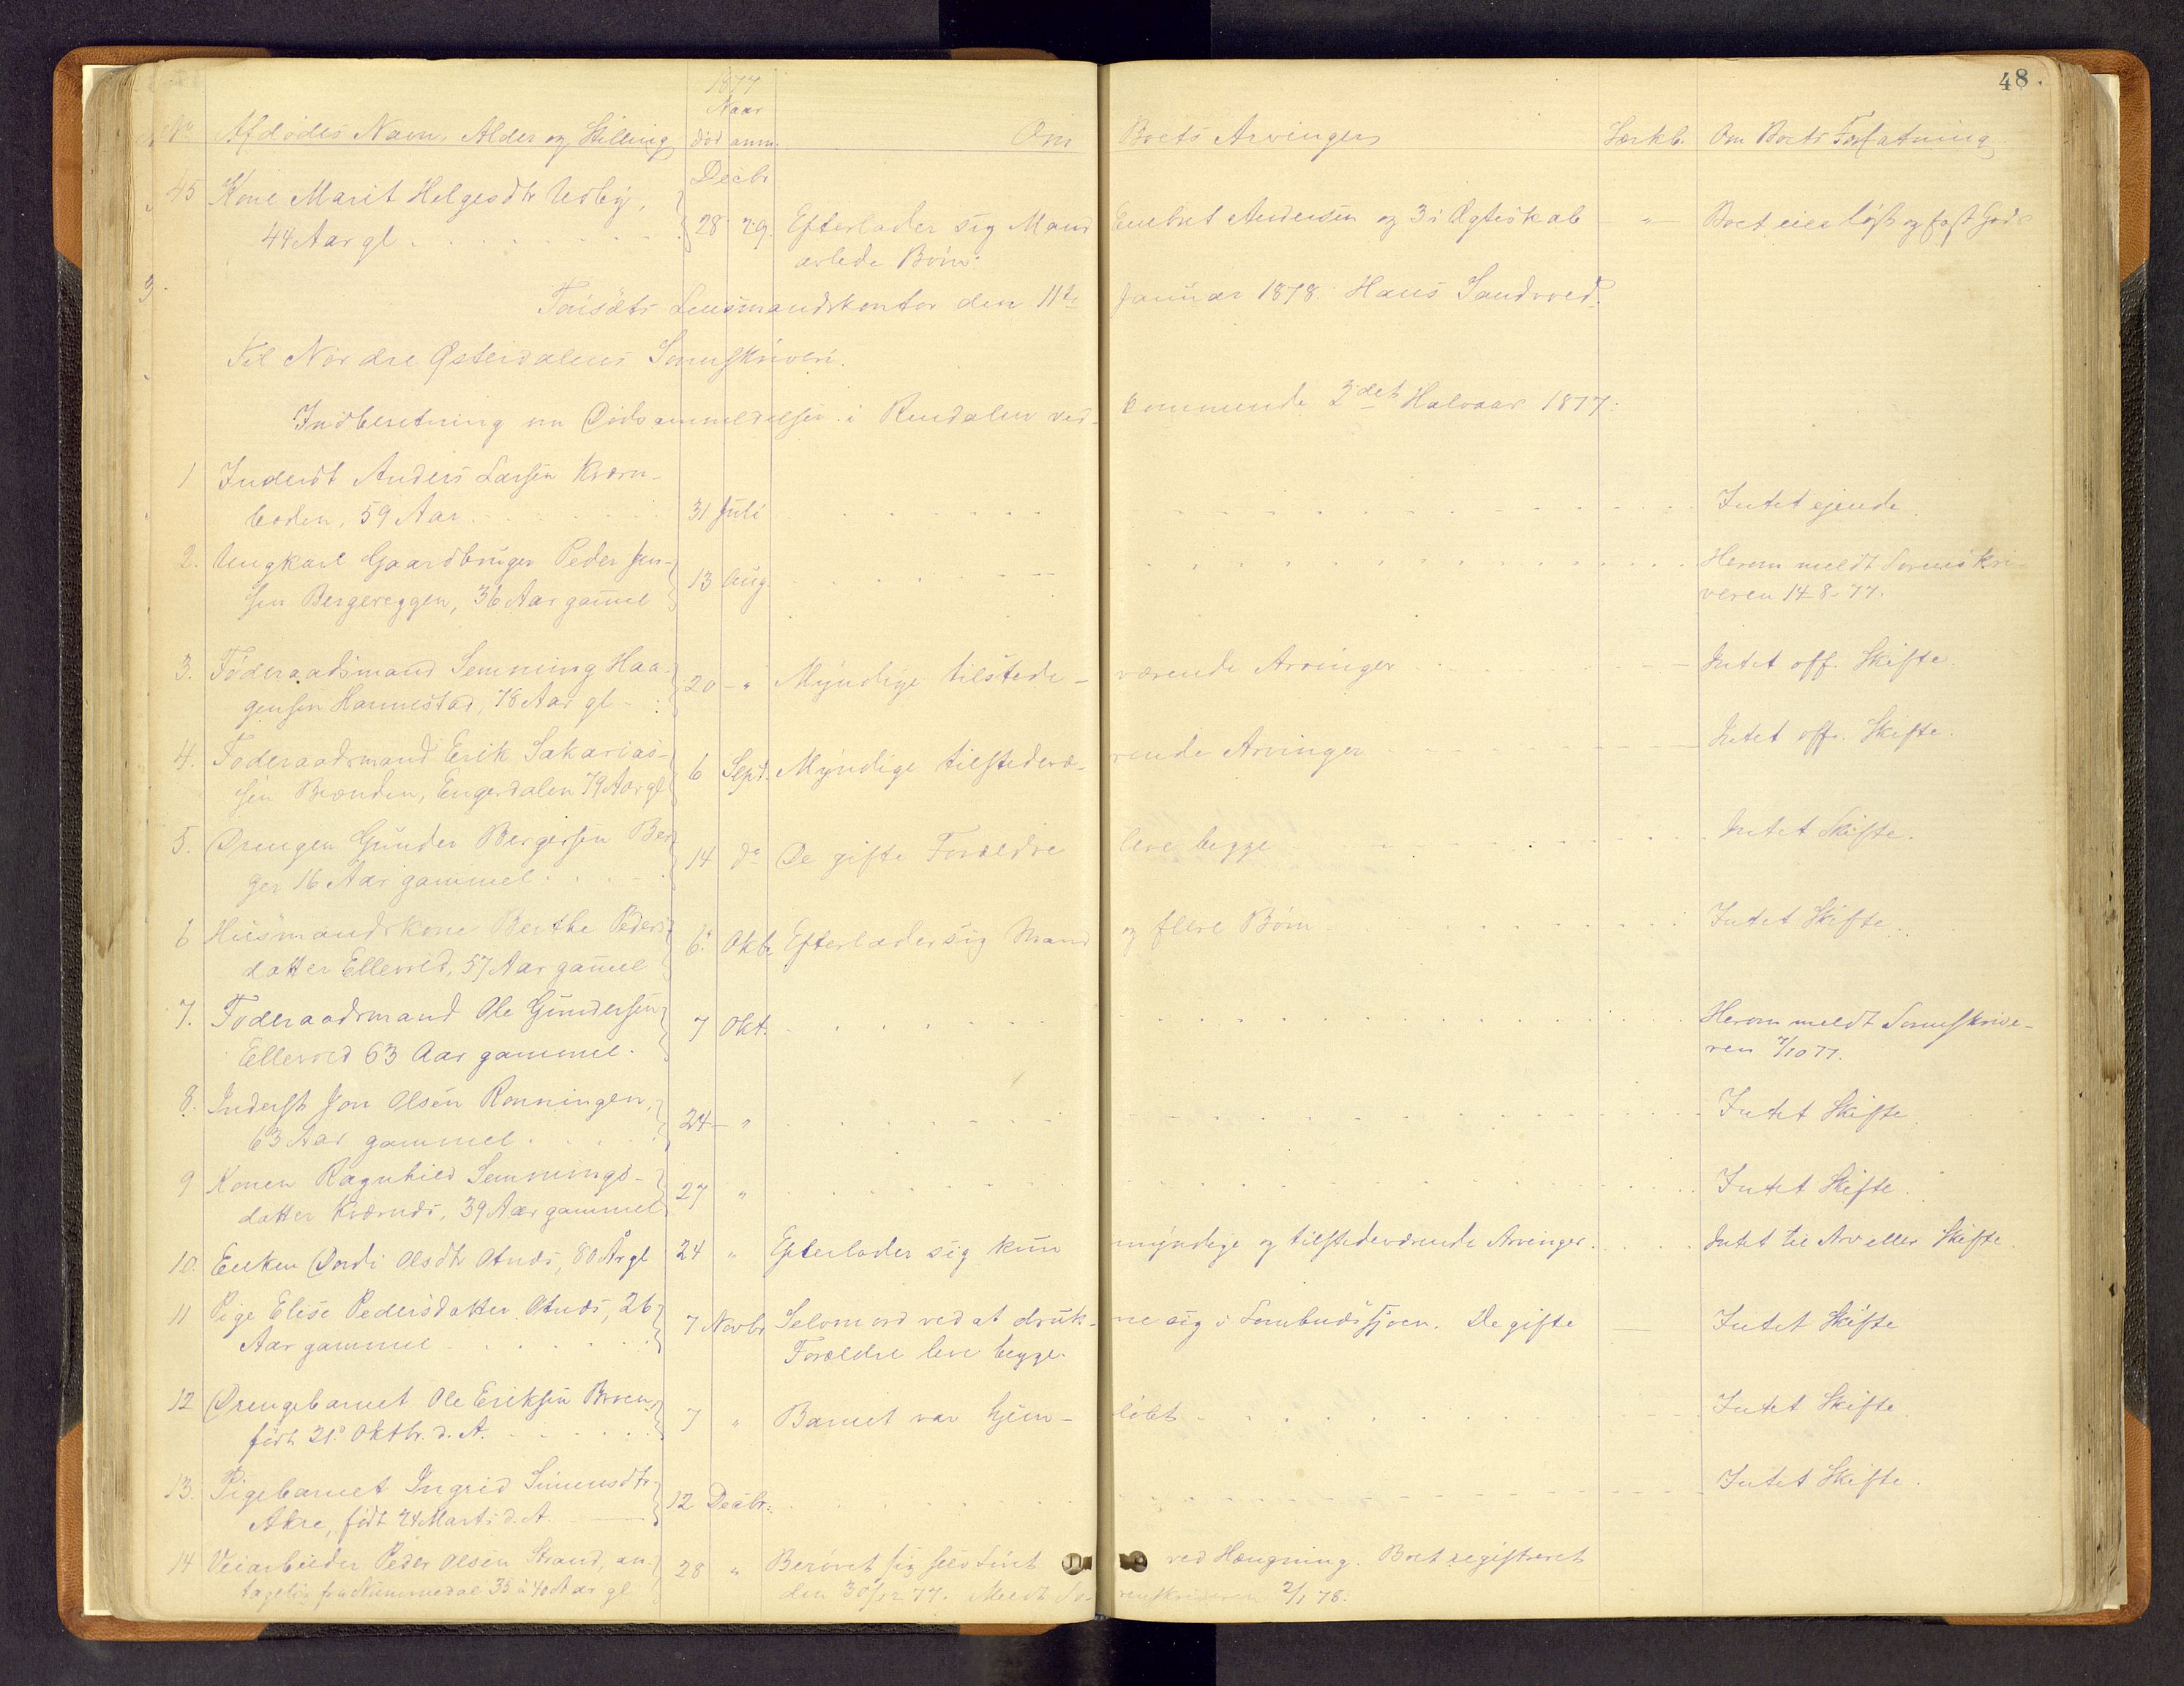 48.
1877
Naar
No Afdødes Navn, Alder og Stilling død anm. Om Boets Arvinger Særkb. Om Boets Forfatning
Decbr
45 Kone Marit Helgesdtr Usby,
44 Aar gl. 28 29. Efterlader sig Mand Embret Andersen og 3 i Ægteskab " Boet eier løst og fast Gods
avlede Børn.
Tønsets Lensmandskontor den 11te Januar 1878. Hans Sandvold.
Til Nordre Østerdalens Sorenskriveri.
Indberetning om Dødsanmeldelser i Rendalen ved- kommende 2det Halvaar 1877:
1 Inderst Anders Larsen Kværn-
boden, 59 Aar 31 Juli Intet ejende.
2. Ungkarl Gaardbruger Peder Jen-
sen Bergereggen, 36 Aar gamel 13 Aug. Herom meldt Sorenskri
veren 14-8-77.
3. Føderaadsmand Semming Haa-
gensen Harnestad, 78 Aar gl 20 - " Myndige tilstede- værende Arvinger Intet off. Skifte.
4. Føderaadsmand Erik Sakarias-
sen Brænden, Engerdalen 79 Aar gl 6 Sept. Myndige tilstedevæ- rende Arvinger Intet off. Skifte.
5. Drengen Gunder Bergersen Ber
ger 16 Aar gammel. 14 do De gifte Forældre leve begge Intet Skifte.
6 Husmandskone Berthe Peders
datter Ellevold, 57 Aar gamel 6. Oktb. Efterlader sig Mand og flere Børn Intet Skifte.
7. Føderaadsmand Ole Gundersen
Ellevold 63 Aar gammel. 7 Okt. Herom meldt Sorenskrive-
ren 7/10 77.
8. Inderst Jon Olsen Rønningen,
63 Aar gammel. 24 - " Intet Skifte.
9 Konen Ragnhild Semmings-
datter Kværnæs, 39 Aar gammel 27 " Intet Skifte.
10. Enken Dordi Olsdtr Otnæs, 80 År gl 24 " Efterlader sig kun myndige og tilstedeværende Arvinger. Intet til Arv eller Skifte.
11 Pige Elise Pedersdatter Otnæs, 26
Aar gammel 7 Novbr Selvmord ved at druk- ne sig i Lombudssjøen. De gifte — Intet Skifte
Forældre leve begge.
12 Drengebarnet Ole Eriksen Broen,
født 21. Oktbr. d. A. 7 " Barnet var hjem- døbt Intet Skifte.
13. Pigebarnet Ingrid Simensdtr
Akre, født 24 Marts d. A. 12 Decbr. Intet Skifte.
14 Veiarbeider Peder Olsen Strand, an-
tagelig fra Nummedal 35 à 40 Aar gl 28 " Berøvet sig selv Livet ved Hængning. Boet registreret
den 30/12 77. Meldt So- renskriveren 2/1 78.